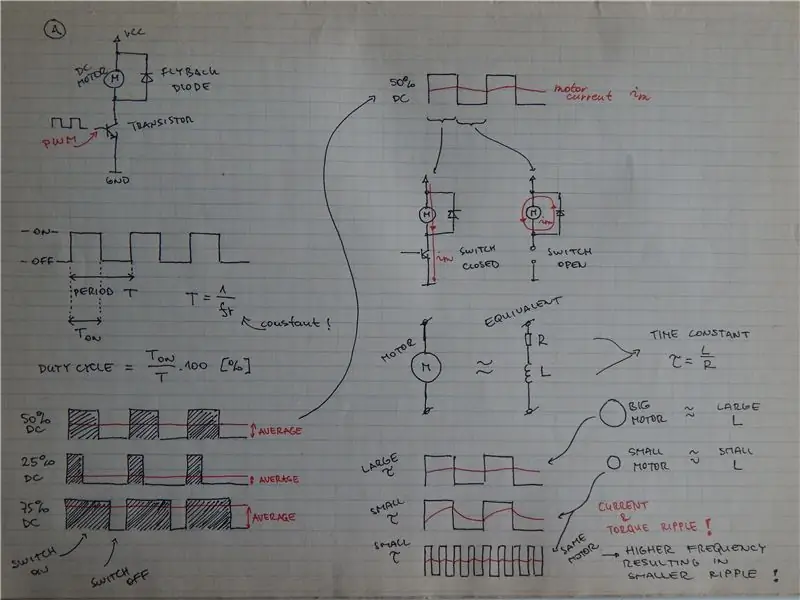 A
VCC
DC
MOTOR
M
FLYBACK
DIODE
TRANSISTOR
PWM
GND
-ON-
-OFF-
PERIOD T
TON
T = 1/fr
constant!
DUTY CYCLE = TON/T . 100 [%]
50%
DC
AVERAGE
25%
DC
AVERAGE
75%
DC
AVERAGE
SWITCH
ON
SWITCH
OFF
50%
DC
motor
current im
M
im
SWITCH
CLOSED
M
im
SWITCH
OPEN
MOTOR
M
≈
EQUIVALENT
R
L
TIME CONSTANT
τ = L/R
BIG
MOTOR ≈ LARGE
L
SMALL
MOTOR ≈ SMALL
L
LARGE
τ
SMALL
τ
CURRENT
&
TORQUE RIPPLE!
SMALL
τ
SAME
MOTOR
→ HIGHER FREQUENCY
RESULTING IN
SMALLER RIPPLE!